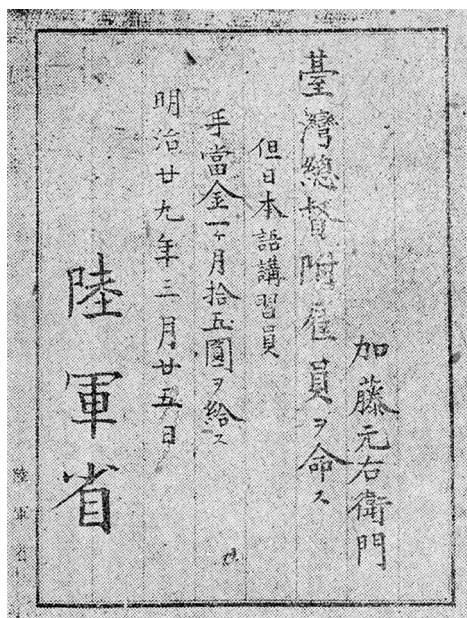 加藤元右衛門
臺灣總督附雇員ヲ命ス
但日本語講習員
手當金一ヶ月拾五圓ヲ給ス
明治廿九年三月廿五日
陸軍省
陸軍省